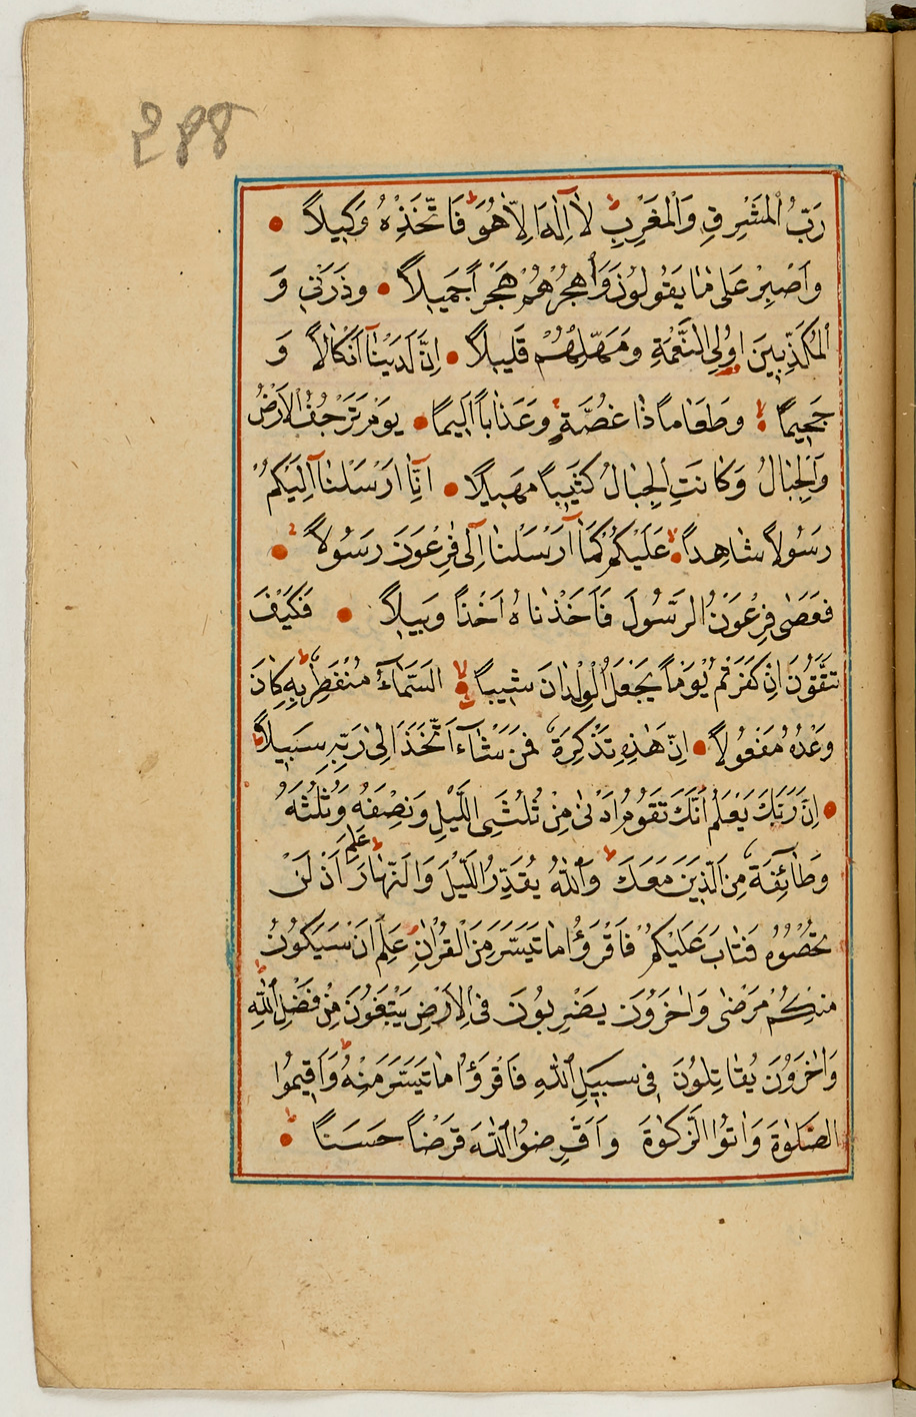 288
رَبُّ الْمَشْرِقِ وَالْمَغْرِبِ لَا اِلٰهَ اِلَّا هُوَ فَاتَّخِذْهُ وَكِيلاً
وَاصْبِرْ عَلٰى مَا يَقُولُونَ وَاهْجُرْهُمْ هَجْراً جَمِيلاً وَذَرْنِي وَ
الْمُكَذِّبِينَ اُولِي النَّعْمَةِ وَمَهِّلْهُمْ قَلِيلاً اِنَّ لَدَيْنَا اَنْكَالاً وَ
جَحِيماً وَطَعَاماً ذَا غُصَّةٍ وَعَذَاباً اَلِيماً يَوْمَ تَرْجُفُ الْاَرْضُ
وَالْجِبَالُ وَكَانَتِ الْجِبَالُ كَثِيباً مَهِيلاً اِنَّا اَرْسَلْنَا اِلَيْكُمْ
رَسُولاً شَاهِداً عَلَيْكُمْ كَمَا اَرْسَلْنَا اِلٰى فِرْعَوْنَ رَسُولاً
فَعَصٰى فِرْعَوْنُ الرَّسُولَ فَاَخَذْنَاهُ اَخْذاً وَبِيلاً فَكَيْفَ
تَتَّقُونَ اِنْ كَفَرْتُمْ يَوْماً يَجْعَلُ الْوِلْدَانَ شِيباً السَّمَاءُ مُنْفَطِرٌ بِهِ كَانَ
وَعْدُهُ مَفْعُولاً اِنَّ هٰذِهِ تَذْكِرَةٌ فَمَنْ شَاءَ اتَّخَذَ اِلٰى رَبِّهِ سَبِيلاً
اِنَّ رَبَّكَ يَعْلَمُ اَنَّكَ تَقُومُ اَدْنٰى مِنْ ثُلُثَيِ الَّيْلِ وَنِصْفَهُ وَثُلُثَهُ
وَطَائِفَةٌ مِنَ الَّذِينَ مَعَكَ وَاللّٰهُ يُقَدِّرُ الَّيْلَ وَالنَّهَارَ عَلِمَ اَنْ لَنْ
تُحْصُوهُ فَتَابَ عَلَيْكُمْ فَاقْرَؤُا مَا تَيَسَّرَ مِنَ الْقُرْاٰنِ عَلِمَ اَنْ سَيَكُونُ
مِنْكُمْ مَرْضٰى وَاٰخَرُونَ يَضْرِبُونَ فِي الْاَرْضِ يَبْتَغُونَ مِنْ فَضْلِ اللّٰهِ
وَاٰخَرُونَ يُقَاتِلُونَ فِي سَبِيلِ اللّٰهِ فَاقْرَؤُا مَا تَيَسَّرَ مِنْهُ وَاَقِيمُوا
الصَّلٰوةَ وَاٰتُوا الزَّكٰوةَ وَاَقْرِضُوا اللّٰهَ قَرْضاً حَسَناً